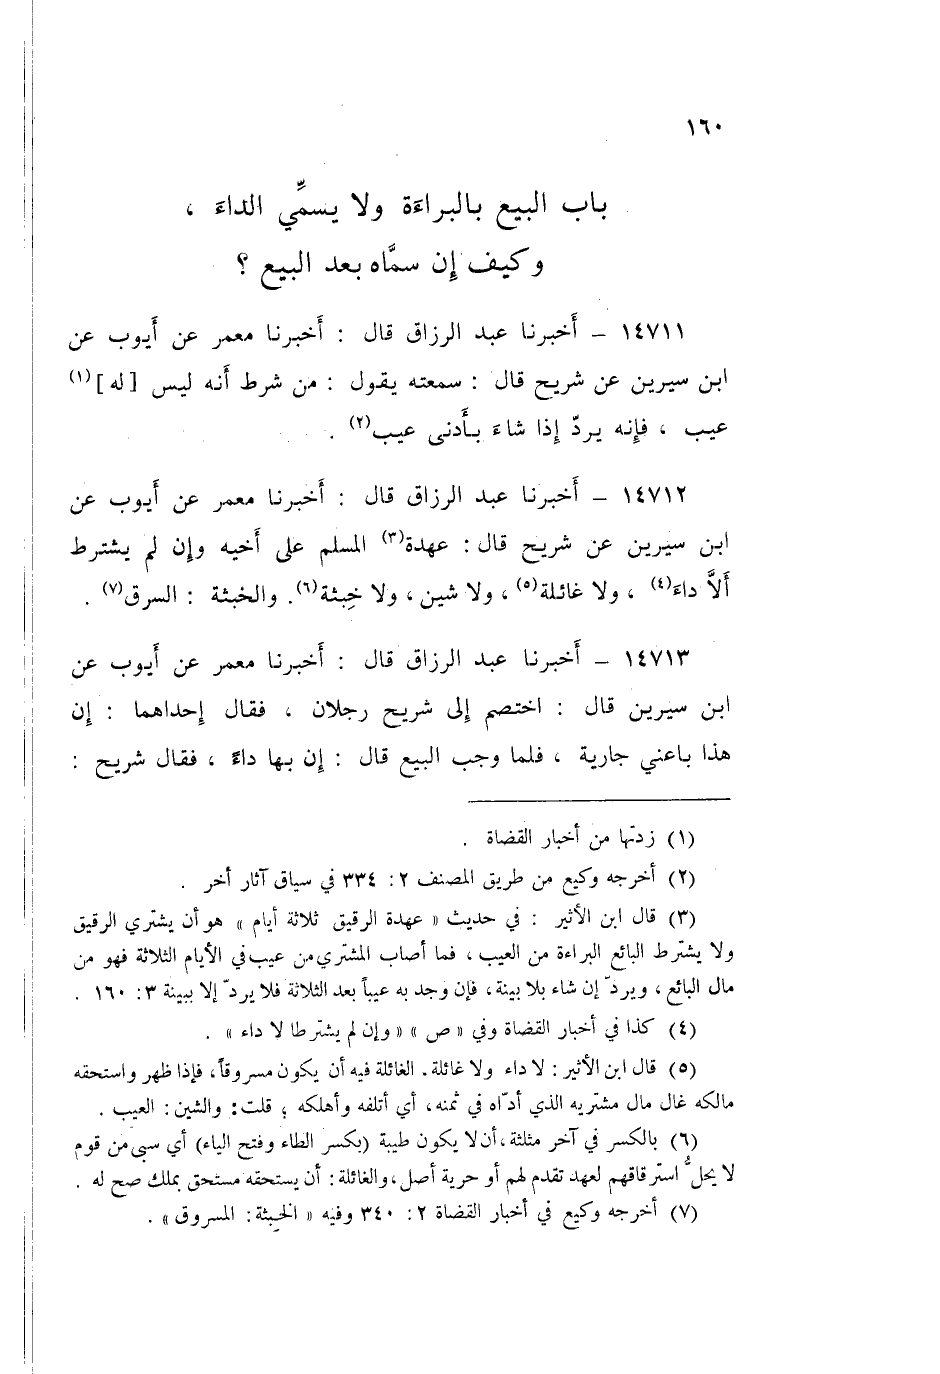 ١٦٠
باب البيع بالبراءة ولا يسمِّي الداءَ ،
وكيف إن سمَّاه بعد البيع ؟
١٤٧١١ – أَخبرنا عبد الرزاق قال : أَخبرنا معمر عن أَيوب عن
ابن سيرين عن شريح قال : سمعته يقول : من شرط أَنه ليس [له](١)
عيب ، فإنه يردّ إذا شاءَ بأَدنى عيب(٢) .
١٤٧١٢ – أَخبرنا عبد الرزاق قال : أَخبرنا معمر عن أَيوب عن
ابن سيرين عن شريح قال : عهدة(٣) المسلم على أَخيه وإن لم يشترط
أَلاَّ داءَ(٤) ، ولا غائلة(٥) ، ولا شين ، ولا خِبثة(٦). والخبثة : السرق(٧) .
١٤٧١٣ – أَخبرنا عبد الرزاق قال : أَخبرنا معمر عن أَيوب عن
ابن سيرين قال : اختصم إلى شريح رجلان ، فقال إحداهما : إن
هذا باعني جارية ، فلما وجب البيع قال : إن بها داءً ، فقال شريح :
(١) زدتها من أخبار القضاة .
(٢) أخرجه وكيع من طريق المصنف ٢ : ٣٣٤ في سياق آثار أخر .
(٣) قال ابن الأثير : في حديث « عهدة الرقيق ثلاثة أيام » هو أن يشتري الرقيق
ولا يشترط البائع البراءة من العيب ، فما أصاب المشتري من عيب في الأيام الثلاثة فهو من
مال البائع ، ويردّ إن شاء بلا بينة ، فإن وجد به عيباً بعد الثلاثة فلا يردّ إلا ببينة ٣ : ١٦٠ .
(٤) كذا في أخبار القضاة وفي « ص » « وإن لم يشترطا لا داء » .
(٥) قال ابن الأثير : لا داء ولا غائلة . الغائلة فيه أن يكون مسروقاً ، فإذا ظهر واستحقه
مالكه غال مال مشتريه الذي أدّاه في ثمنه ، أي أتلفه وأهلكه ؛ قلت : والشين : العيب .
(٦) بالكسر في آخر مثلثة ، أن لا يكون طيبة (بكسر الطاء وفتح الياء) أي سبي من قوم
لا يحلّ استرقاقهم لعهد تقدم لهم أو حرية أصل ، والغائلة : أن يستحقه مستحق بملك صح له .
(٧) أخرجه وكيع في أخبار القضاة ٢ : ٣٤٠ وفيه « الخِبثة : المسروق » .